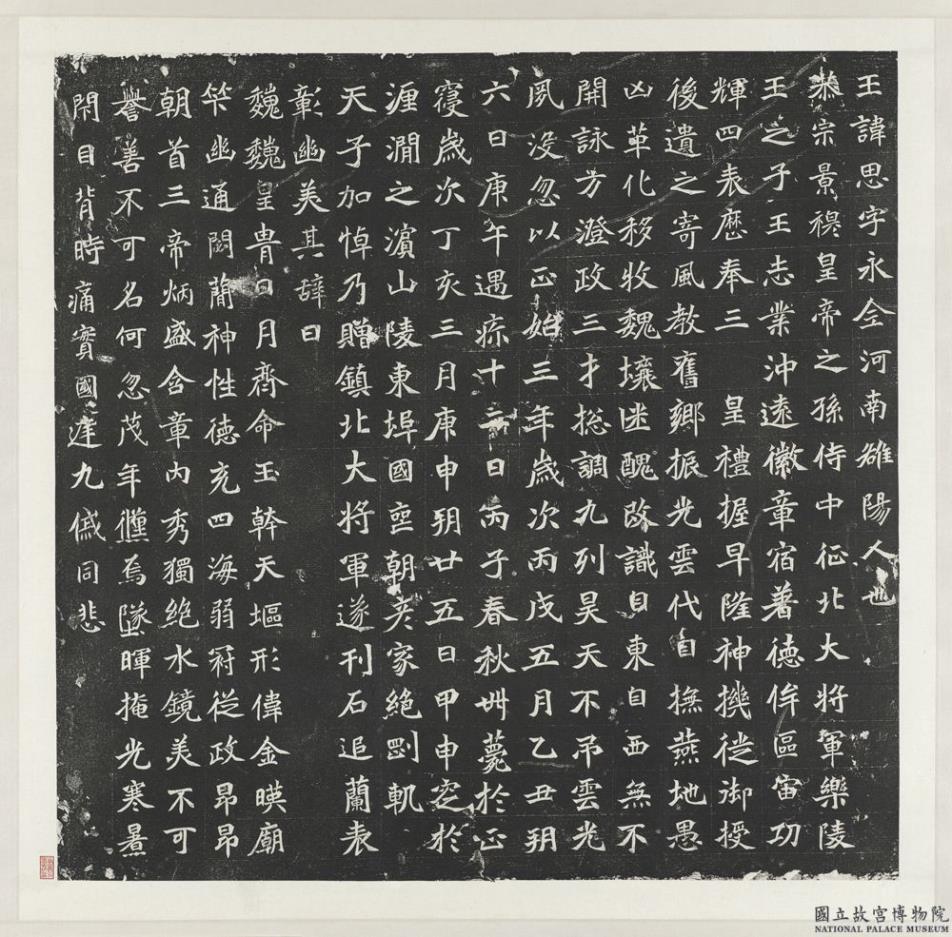 王諱思字永全河南雒陽人也
恭宗景穆皇帝之孫侍中征北大將軍樂陵
王之子王志業沖遠徽章宿著德侔區宙功
輝四表歷奉三皇禮握早隆神機徙御授
後遺之寄風教舊鄉振光雲代自撫燕地愚
凶革化移牧魏壤迷醜改識自東自西無不
開詠方澄政三才揔調九列昊天不弔雲光
夙沒忽以正始三年歲次丙戌五月乙丑朔
六日庚午遇疹十二日丙子春秋卌薨於正
寢歲次丁亥三月庚申朔廿五日甲申窆於
湹澗之濱山陵東埠國喪朝彥家絕剛軌
天子加悼乃贈鎮北大將軍遂刊石追蘭表
彰幽美其辭曰
巍巍皇胄日月齊命玉幹天塸形偉金暎廟
竿幽通閟蘭神性德充四海弱冠從政昂昂
朝首三帝炳盛含章內秀獨絕水鏡美不可
譽善不可名何忽茂年儷焉墜暉掩光寒暑
閇目背時痛實國達九慼同悲
國立故宮博物院
NATIONAL PALACE MUSEUM